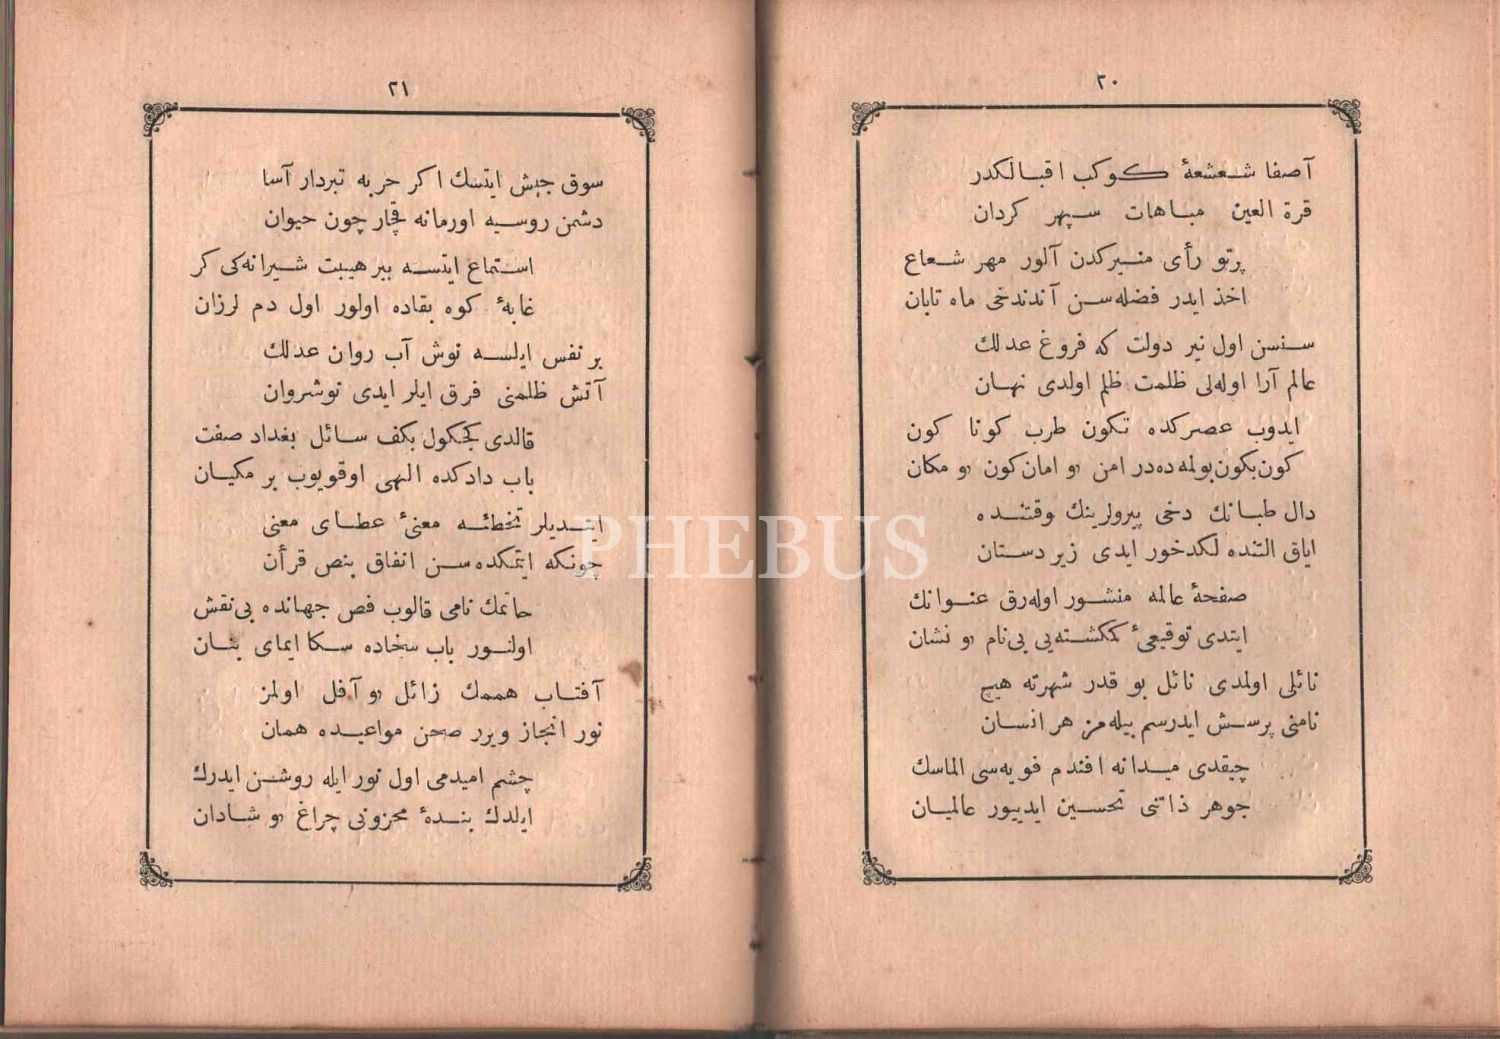 ٢٠
آصفا شعشعهٔ كوكب اقبالكدر
قرة العين مباهات سپهر كردان
پرتو رأى منيركدن آلور مهر شعاع
اخذ ايدر فضله‌سن آندندخى ماه تابان
سنسن اول نير دولت كه فروغ عدلك
عالم آرا اوله‌لى ظلمت ظلم اولدى نهان
ايدوب عصركده تكون طرب كونا كون
كون بكون بولمه‌ده‌در امن و امان كون و مكان
دال طبانك دخى پيرولرينك وقتنده
اياق التنده لكدخور ايدى زير دستان
صفحهٔ عالمه منشور اوله‌رق عنوانك
ايتدى توقيعىٔ كمكشته‌يى بى‌نام و نشان
نائلى اولمدى نائل بو قدر شهرته هيچ
نامنى پرسش ايدرسم بيله‌مز هر انسان
چيقدى ميدانه افندم فويه‌سى الماسك
جوهر ذاتنى تحسين ايدييور عالميان
٢١
سوق جيش ايتسك اكر حربه تبردار آسا
دشمن روسيه اورمانه قچار چون حيوان
استماع ايتسه ببر هيبت شيرانه‌كى كر
غابهٔ كوه بقاده اولور اول دم لرزان
بر نفس ايلسه نوش آب روان عدلك
آتش ظلمنى فرق ايلر ايدى نوشروان
قالدى كجكول بكف سائل بغداد صفت
باب دادكده الهى اوقويوب بر مكيان
ايتديلر تخطئه معنىٔ عطاى معنى
چونكه ايتمكده سن انفاق بنص قرأن
حاتمك نامى قالوب فص جهانده بى‌نقش
اولنور باب سخاده سكا ايماى بنان
آفتاب هممك زائل و آفل اولمز
نور انجاز ويرر صحن مواعيده همان
چشم اميدمى اول نور ايله روشن ايدرك
ايلدك بندهٔ محزونى چراغ و شادان
PHEBUS